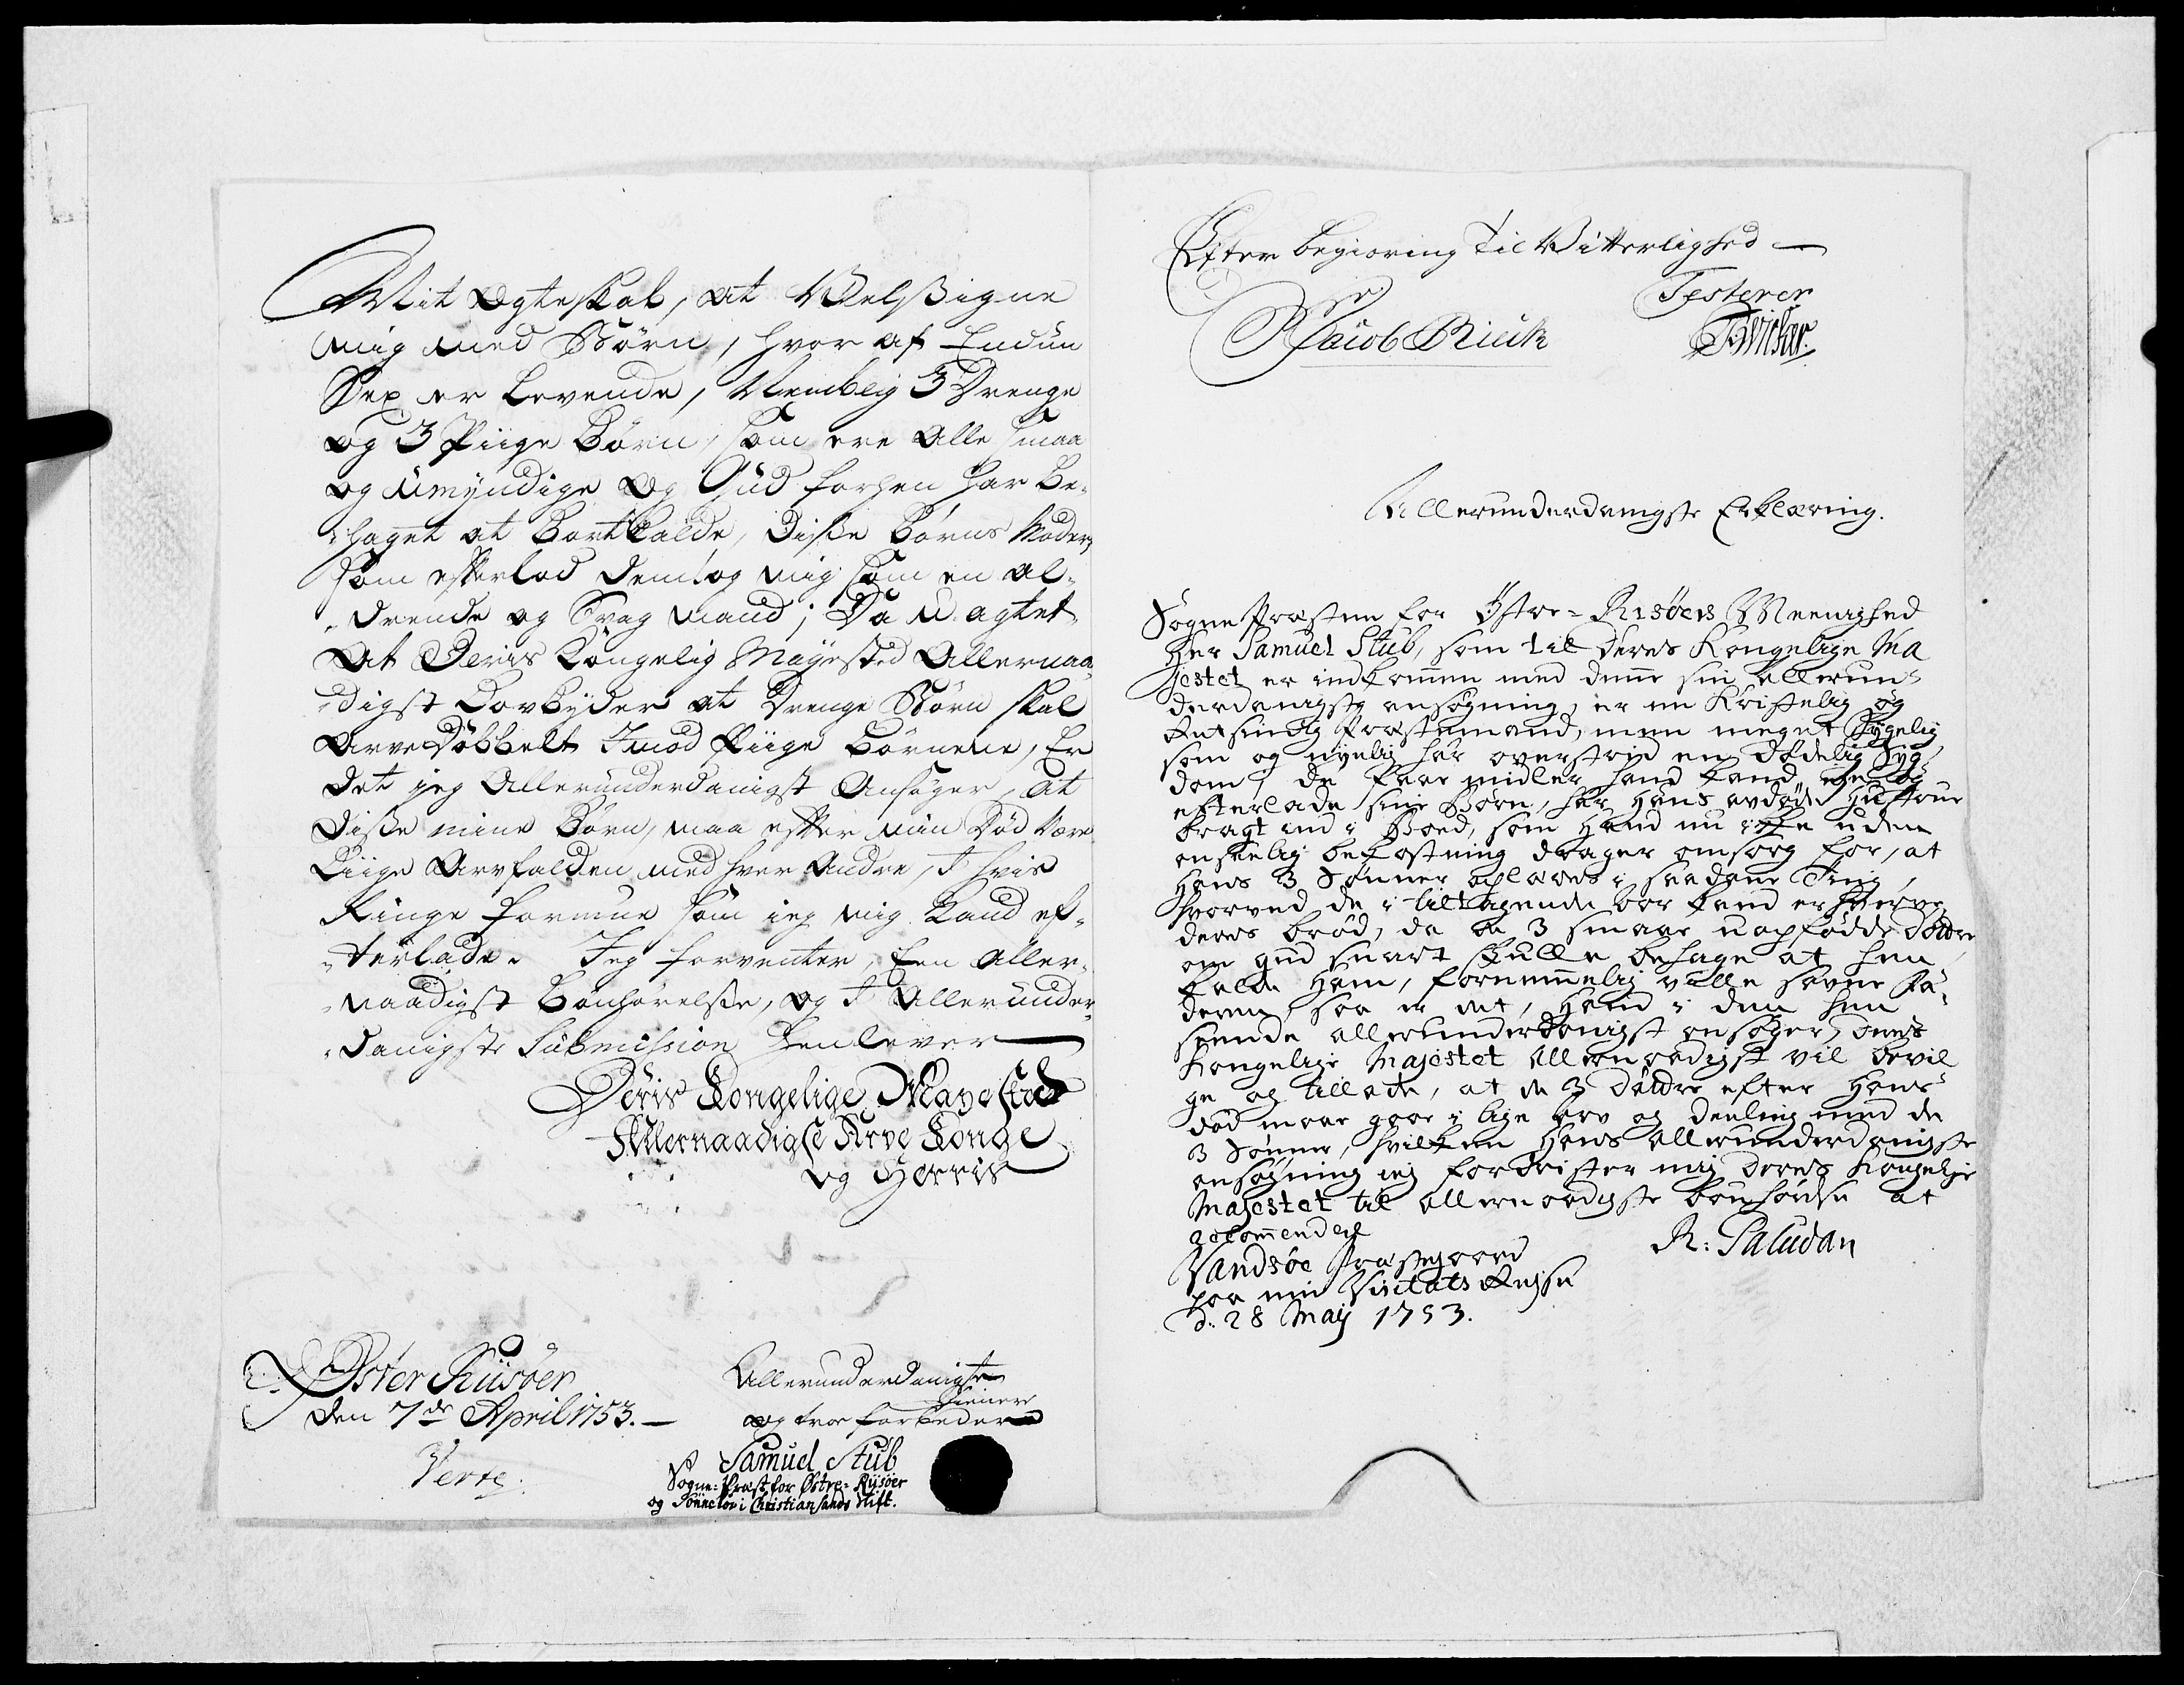 Mit Ægteskab, at Velßigne
mig med Børn, hvor af Endnu
Sex er Levende, Nemblig 3 Drenge
og 3 Piige Børn, som ere Alle smaa
og umyndige og Gud forhen har be-
haget at Bortkalde, Disse Børns Moder,
som efterlod dem og mig som en al-
drende og Svag mand; Da u-agtet
At Deris Kongelig Mayested Allernaa-
digst Lovbyder at Drenge Børn skal
Arve Dobbelt Imod Piige Børnene, Er
det jeg Allerunderdanigst Ansøger, at
Disse mine Børn, maa efter min Død være
Liige Arvfalden med hver Andre, I hvis
Ringe formue som jeg mig kand ef-
terlade. Jeg forventer, Een Aller-
naadigst Bønhørelse, og I Allerunder-
danigste Submission Henlever
Deris Kongelige Mayestæd
Allernaadigste Arve Konge
og Herris
Øster Riisøer
den 7de April 1753.
Verte.
Allerunderdanigste
tienere
og troe forbedere
Samuel Stub
Sogne-Præst for Østre-Riisøer
og Sønneløv i Christiansands Stift.
Efter begiæring til Vitterlighed
Testerer
Jacob Riück
Allerunderdanigste Erklæring.
Sogne Præsten for Østre-Risøers Meenighed
Her Samuel Stub, som til Deres Kongelige Ma
jestet er indkommen med denne sin allerun-
derdanigste ansøgning, er en Kristelig og
Retsindig Præstemand, men meget Sygelig
som og nyelig har overstaaed en dødelig Syg-
dom, de faae midler hand kand eje og
efterlade sine Børn, har Hans avdøde Hustrue
bragt ind i Boed, som Hand nu ikke uden
anseelig bekostning drager omsorg for, at
Hans 3 Sønner oplæres i saadane Ting,
hvorved de i tiltagende aar kand erhverve
deres brød, da de 3 smaae uopfødde Døttre
om gud snart skulle behage at hen
kalde Ham, fornemmelig ville savne Fa-
deren, saa er det, Hand i den hen
seende allerunderdanigst ansøger, Deres
Kongelige Majestet allernaadigst vil bevil
ge og tillade, at de 3 Døttre efter Hans
død maae gaae i lige arv og deeling med de
3 Sønner, hvilken Hans allerunderdanigste
ansøgning jeg fordrister mig Deres Kongelige
Majestet til allernaadigste bønhørelse at
recommendere
R: Paludan
Vandsøe Præstegaard
paa min Visitats Rejse
d. 28 Maij 1753.